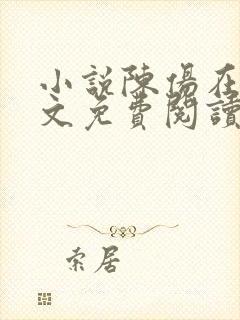 小説陳傷在
文免費閱讀
索居